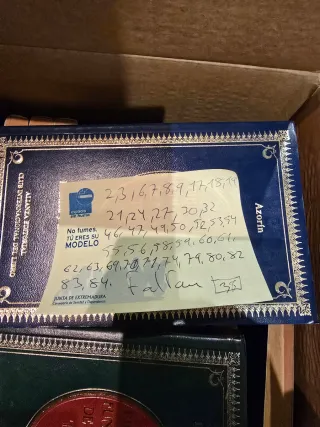 Azorín
2,3,6,7,8,9,17,18,19
21,24,27,30,32
No fumes,
TÚ ERES SU
MODELO
46,47,49,50,52,53,54
55,56,58,59,60,61,
62,63,69,70,71,74,79,80,82
83,84. Faltan 35
JUNTA DE EXTREMADURA
CLUB INTERNACIONAL DEL LIBRO